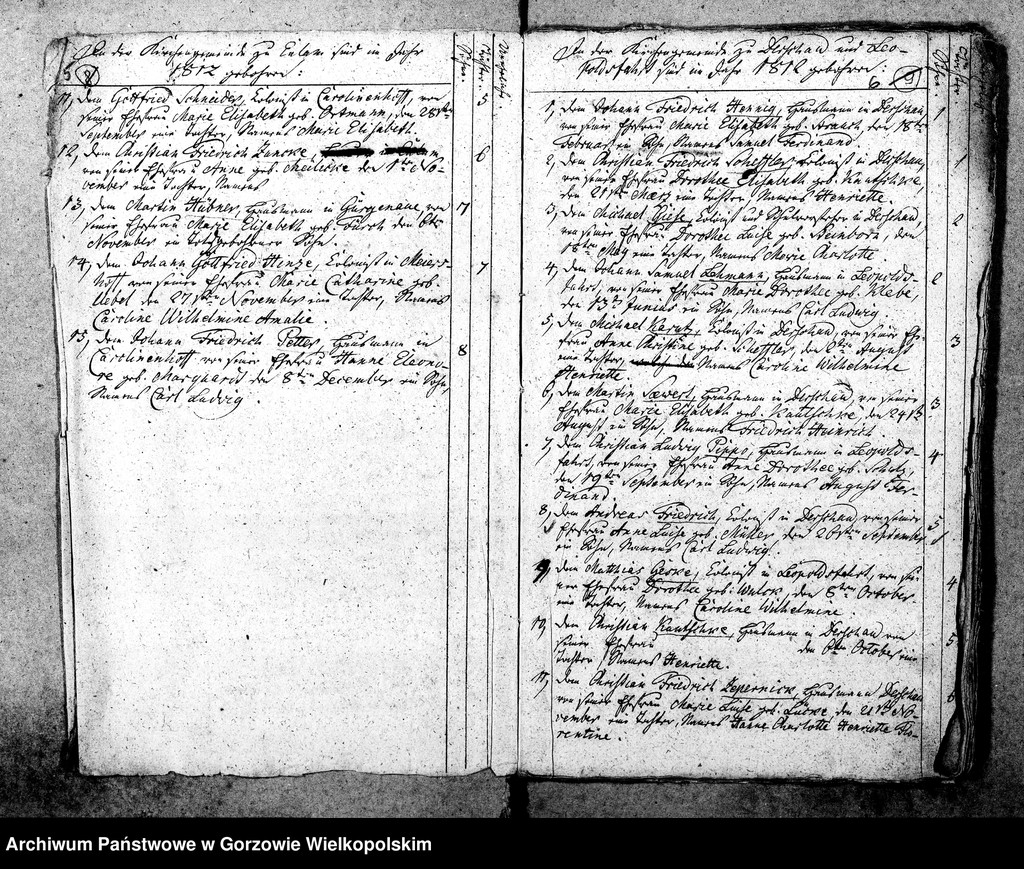 In der Kirchengemeinde zu Eulam sind im Jahr
1812 gebohren:
5 8
Söhne.
Töchter.
11, dem Gottfried Schneider, Colonist in Carolinenhoff, von 5
seiner Ehefrau Marie Elisabeth geb. Ortmann, den 28sten
September eine Tochter, Namens Marie Elisabeth.
12, dem Christian Friedrich 6
von seiner Ehefrau Anne geb. den 1ten No-
vember eine Tochter, Namens
13, dem Martin Hübner, Hausmann in Gürgenaue, von 7
seiner Ehefrau Marie Elisabeth geb. den 6ten
November ein Sohn.
14, dem Johann Gottfried Hinze, Colonist in Meiers- 7
hoff, von seiner Ehefrau Marie Catharine geb.
Uebel den 27sten November eine Tochter, Namens
Caroline Wilhelmine Amalie.
15, dem Johann Friedrich Petter, Hausmann in 8
Carolinenhoff von seiner Ehefrau Hanne Eleono-
re geb. Marquardt den 8ten December ein Sohn,
Namens Carl Ludwig.
In der Kirchengemeinde zu Derschau und Leo-
poldsfahrt sind im Jahr 1812 gebohren:
6 9
1, dem Johann Friedrich Hennig, Hausmann in Derschau, 1
von seiner Ehefrau Marie Elisabeth geb. den 18ten
Februar ein Sohn, Namens Samuel Ferdinand.
2, dem Christian Friedrich Scheffler, Colonist in Derschau, 1
von seiner Ehefrau Dorothee Elisabeth geb. Kautschke,
den 21sten März eine Tochter, Namens Henriette.
3, dem Michael Giese, Colonist und in Derschau 2
von seiner Ehefrau Dorothee Luise geb. Steinborn, den
18ten May eine Tochter, Namens Marie Charlotte
4, dem Johann Samuel Lehmann, Hausmann in Leopolds- 2
fahrt, von seiner Ehefrau Marie Dorothee geb. Klebe,
den 13ten Junius ein Sohn, Namens Carl Ludwig
5, dem Michael Colonist in Derschau, von seiner Ehe- 3
frau Anne Christine geb. Scheffler, den August
eine Tochter, Namens Caroline Wilhelmine
Henriette.
6, dem Martin Hausmann in Derschau, von seiner 3
Ehefrau Marie Elisabeth geb. Kautschke, den 24sten
August ein Sohn, Namens Friedrich Heinrich
7, dem Christian Ludwig Hausmann in Leopolds- 4
fahrt, von seiner Ehefrau Anne Dorothee geb. Schulz,
den 19ten September ein Sohn, Namens August Fer-
dinand.
8, dem Andreas Friedrich, Colonist in Derschau, von seiner 5
Ehefrau Anne Luise geb. Müller, den 26sten September
ein Sohn, Namens Carl Ludwig.
9, dem Matthias Geske, Colonist in Leopoldsfahrt, von sei- 4
ner Ehefrau Dorothee geb. den 8ten October
eine Tochter, Namens Caroline Wilhelmine.
10, dem Christian Kautschke, Hausmann in Derschau von 5
seiner Ehefrau den 6ten October eine
Tochter, Namens Henriette.
11, dem Christian Friedrich Zepernick, Hausmann Derschau 6
von seiner Ehefrau Marie Luise geb. Lücke den 21sten No-
vember eine Tochter, Namens Hanne Charlotte Henriette Flo-
rentine.
Archiwum Państwowe w Gorzowie Wielkopolskim